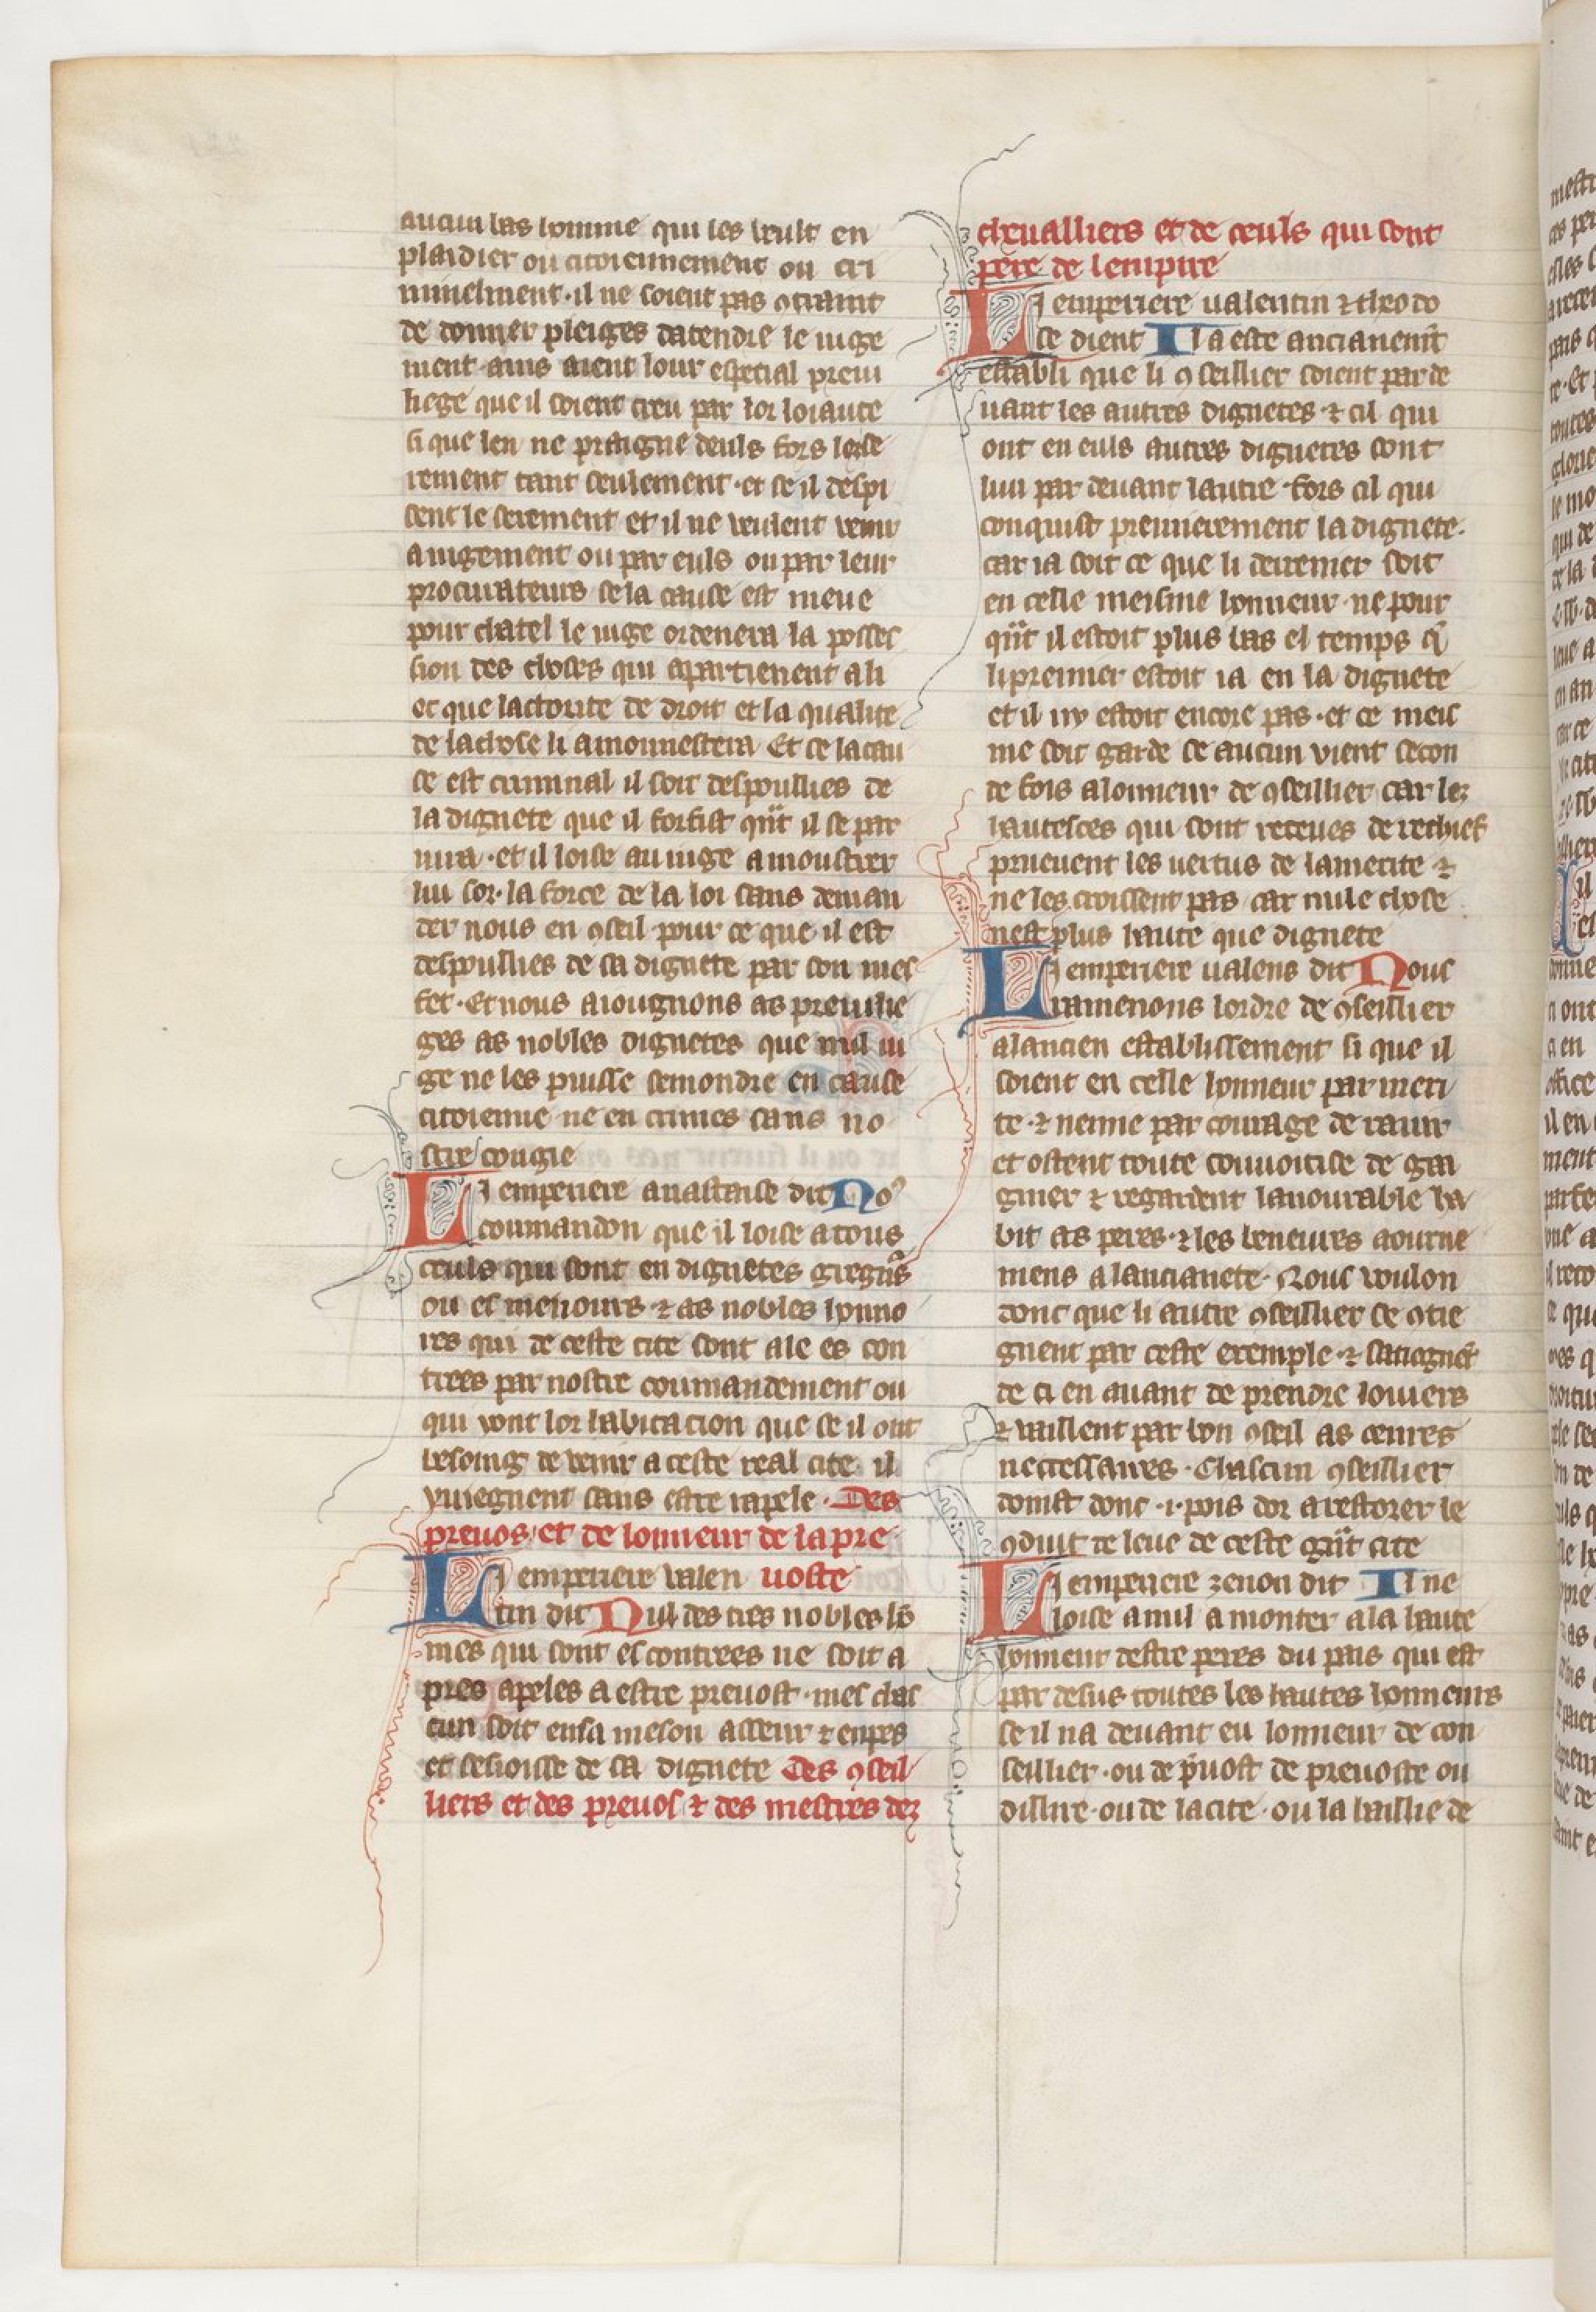 aucun bas homme qui les veult en
plaidier ou citoiennement ou cri
minelment · il ne soient pas ꝯtraint
de donner pleiges datendre le iuge
ment ains aient lour espetial preui
liege que il soient creu par lor loiaute
si que len ne praigne deuls fors le se
rement tant seulement · et se il despi
sent le serement et il ne veulent venir
a iugement ou par euls ou par leur
procurateurs se la cause est meue
pour chatel le iuge ordenera la posses
sion des choses qui apartienent a li
et que lactorite de droit et la qualite
de la chose li amonnestera Et se la cau
se est criminal il soit despoullies de
la dignete que il forfist qñt il se par
iura · et il loise au iuge a moustrer
lui sor · la force de la loi sans deman
der nous en ꝯseil pour ce que il est
despoullies de sa dignete par son mes
fet · Et nous aiougnons as preuile
ges as nobles dignetes que nul iu
ge ne les puisse semondre en cause
citoienne ne en crimes sans no
stre congie
Li emperiere anastaise dit Noꝰ
coumandon que il loise a tous
ceuls qui sont en dignetes gregnrs
ou es menours ⁊ as nobles honno
res qui de ceste cite sont ale es con
trees par nostre coumandement ou
qui vont lor habitacion que se il ont
besoing de venir a ceste real cite il
yviegnent sans estre rapele · Des
preuos et de lonneur de la pre
Li emperiere valen uoste
tin dit Nul des tres nobles hō
mes qui sont es contrees ne soit a
pres apeles a estre preuost · mes chas
cun soit en sa meson asseur ⁊ en pes
et sesioisse de sa dignete Des ꝯseil
liers et des preuos ⁊ des mestres dez
cheualliers et de ceuls qui sont
pere de lempire
Li emperiere ualentin ⁊ theodo
se dient Il a este ancianemt̃
establi que li ꝯseillier soient par de
uant les autres dignetes ⁊ cil qui
ont en euls autres dignetes sont
lun par deuant lautre fors cil qui
conquist premierement la dignete ·
car ia soit ce que li derrenier soit
en celle meisme honneur · ne pour
qñt il estoit plus bas el temps q̃
li premier estoit ia en la dignete
et il ny estoit encore pas · et ce meis
me soit garde se aucun vient secon
de fois a lonneur de ꝯseillier car lez
hautesces qui sont receues de rechief
prueuent les uertus de la merite ⁊
ne les croissent pas car nule chose
nest plus haute que dignete
Li emperiere ualens dit Nous
ramenons lordre de ꝯseillier
a lancien establissement si que il
soient en celle honneur par meri
te · ⁊ nenne par courage de rauir
et ostent toute couuoitise de gai
gnier ⁊ regardent lanourable ha
bit as peres · ⁊ les beneures aourne
mens a lancianete · Nous voulon
donc que li autre ꝯseillier se ꝯtie
gnent par ceste exemple · ⁊
de ci en auant de prendre louiers
⁊ vaillent par bon ꝯseil as
necessaires · Chascun ꝯseillier
doinst donc · i · pois dor a restorer le
ꝯduit de leue de ceste gñt cite
Li emperiere zenon dit Il ne
loise a nul a monter a la haute
honneur destre peres du pais qui est
par desus toutes les hautes honneurs
se il na deuant eu lonneur de con
seillier · ou de p̃uost de preuoste ou
dillire · ou de la cite · ou la baillie de